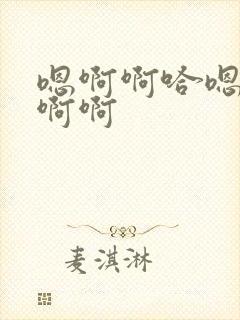 嗯啊啊哈~嗯
啊啊
麦淇淋